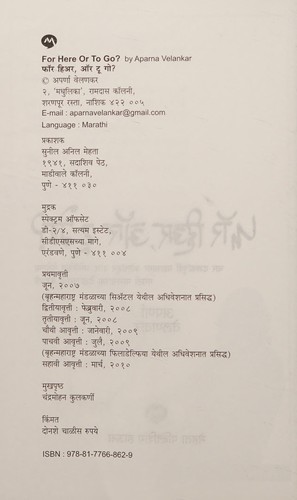 For Here Or To Go? by Aparna Velankar
फॉर हिअर, ऑर टू गो?
© अपर्णा वेलणकर
२, 'मधुलिका', रामदास कॉलनी,
शरणपूर रस्ता, नाशिक ४२२ ००५
E-mail : aparnavelankar@gmail.com
Language : Marathi
प्रकाशक
सुनील अनिल मेहता
१९४१, सदाशिव पेठ,
माडीवाले कॉलनी,
पुणे - ४११ ०३०
मुद्रक
स्पेक्ट्रम ऑफसेट
डी-२/४, सत्यम इस्टेट,
सीडीएसएसच्या मागे,
एरंडवणे, पुणे - ४११ ००४
प्रथमावृत्ती
जून, २००७
(बृहन्महाराष्ट्र मंडळाच्या सिॲटल येथील अधिवेशनात प्रसिद्ध)
द्वितीयावृत्ती : फेब्रुवारी, २००८
तृतीयावृत्ती : जून, २००८
चौथी आवृत्ती : जानेवारी, २००९
पाचवी आवृत्ती : जुलै, २००९
(बृहन्महाराष्ट्र मंडळाच्या फिलाडेल्फिया येथील अधिवेशनात प्रसिद्ध)
सहावी आवृत्ती : मार्च, २०१०
मुखपृष्ठ
चंद्रमोहन कुलकर्णी
किंमत
दोनशे चाळीस रुपये
ISBN : 978-81-7766-862-9